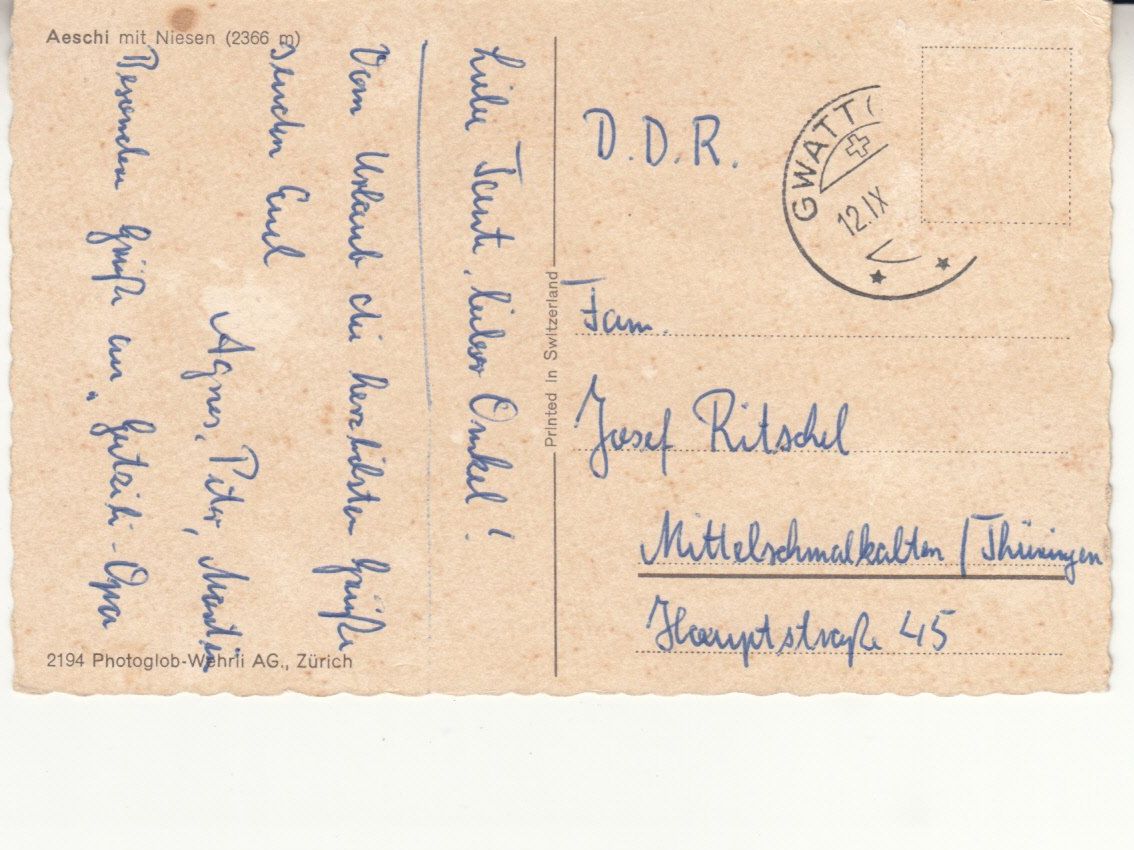 Aeschi mit Niesen (2366 m)
Liebe Tante, lieber Onkel!
Vom Urlaub die herzlichsten Grüße
senden Euch
Agnes, Peter, Martin
Besondere Grüße an
"Gutzeit-Opa
2194 Photoglob-Wehrli AG., Zürich
Printed in Switzerland
GWATT (
12.IX
D.D.R.
Fam.
Josef Ritschel
Mittelschmalkalten / Thüringen
Hauptstraße 45